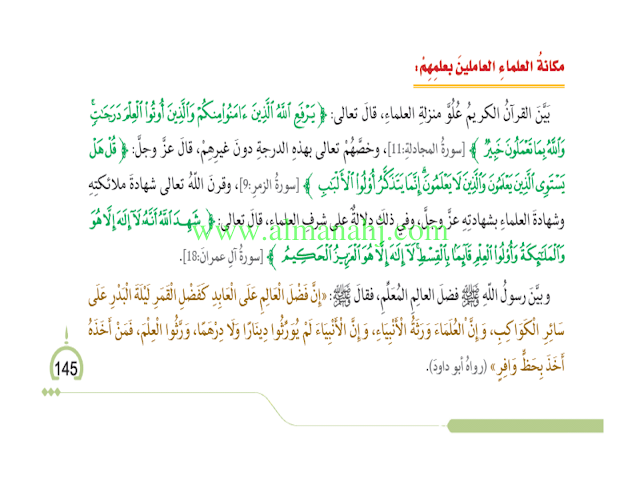 مكانةُ العلماءِ العاملينَ بعلمِهِمْ:
بَيَّنَ القرآنُ الكريمُ عُلُوَّ منزلةِ العلماءِ، قالَ تعالى: ﴿ يَرْفَعِ ٱللَّهُ ٱلَّذِينَ ءَامَنُوا۟ مِنكُمْ وَٱلَّذِينَ أُوتُوا۟ ٱلْعِلْمَ دَرَجَٰتٍۚ
وَٱللَّهُ بِمَا تَعْمَلُونَ خَبِيرٌ ﴾ [سورةُ المجادلةِ:11]، وخصَّهُمْ تعالى بهذهِ الدرجةِ دونَ غيرِهِمْ، قالَ عزَّ وجلَّ: ﴿ قُلْ هَلْ
يَسْتَوِى ٱلَّذِينَ يَعْلَمُونَ وَٱلَّذِينَ لَا يَعْلَمُونَۗ إِنَّمَا يَتَذَكَّرُ أُو۟لُوا۟ ٱلْأَلْبَٰبِ ﴾ [سورةُ الزمرِ:9]، وقرنَ اللهُ تعالى شهادةَ ملائكتِهِ
وشهادةَ العلماءِ بشهادتِهِ عزَّ وجلَّ، وفي ذلكَ دلالةٌ على شرفِ العلماءِ، قالَ تعالى: ﴿ شَهِدَ ٱللَّهُ أَنَّهُۥ لَآ إِلَٰهَ إِلَّا هُوَ
www.almanahj.com
وَٱلْمَلَٰٓئِكَةُ وَأُو۟لُوا۟ ٱلْعِلْمِ قَآئِمًۢا بِٱلْقِسْطِۚ لَآ إِلَٰهَ إِلَّا هُوَ ٱلْعَزِيزُ ٱلْحَكِيمُ ﴾ [سورةُ آلِ عمرانَ:18].
وبيَّنَ رسولُ اللهِ ﷺ فضلَ العالِمِ المُعَلِّمِ، فقالَ ﷺ: «إِنَّ فَضْلَ الْعَالِمِ عَلَى الْعَابِدِ كَفَضْلِ الْقَمَرِ لَيْلَةَ الْبَدْرِ عَلَى
سَائِرِ الْكَوَاكِبِ، وَإِنَّ الْعُلَمَاءَ وَرَثَةُ الْأَنْبِيَاءِ، وَإِنَّ الْأَنْبِيَاءَ لَمْ يُوَرِّثُوا دِينَارًا وَلَا دِرْهَمًا، وَرَّثُوا الْعِلْمَ، فَمَنْ أَخَذَهُ
أَخَذَ بِحَظٍّ وَافِرٍ» (رواهُ أبو داودَ).
145